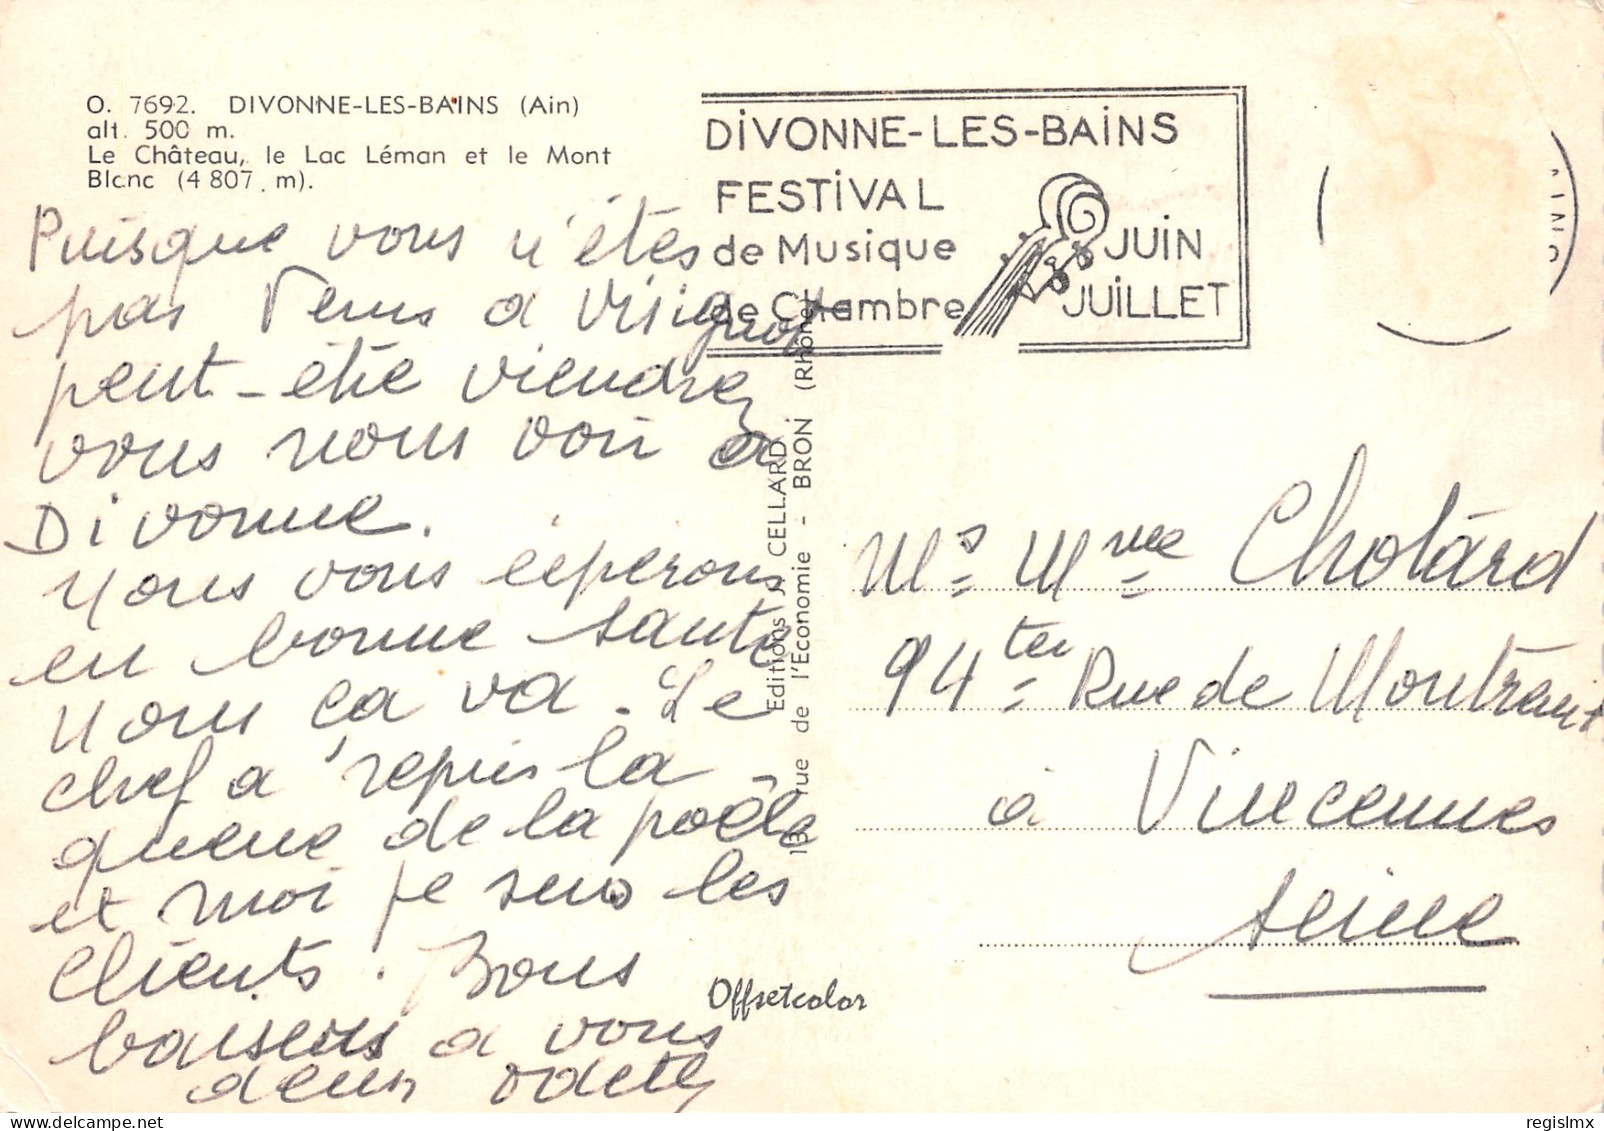 O. 7692. DIVONNE-LES-BAINS (Ain)
alt. 500 m.
Le Château, le Lac Léman et le Mont
Blanc (4 807 m).
Puisque vous n'étes
pas venus a Visignot
peut-être viendrez
vous nous voir a
Divonne.
Nous vous éspérons
en bonne santé
Nous ça va. Le
chef a repris la
queue de la poêle
et moi je sers les
Clients. Bons
baisers a vous
deux Odette
DIVONNE-LES-BAINS
FESTIVAL
de Musique
de Chambre
JUIN
JUILLET
Editions J. CELLARD
13, rue de l'Economie - BRON (Rhône)
Offsetcolor
Mr Mme Chotard
94 ter Rue de Montreuil
à Vincennes
Seine
regislmx